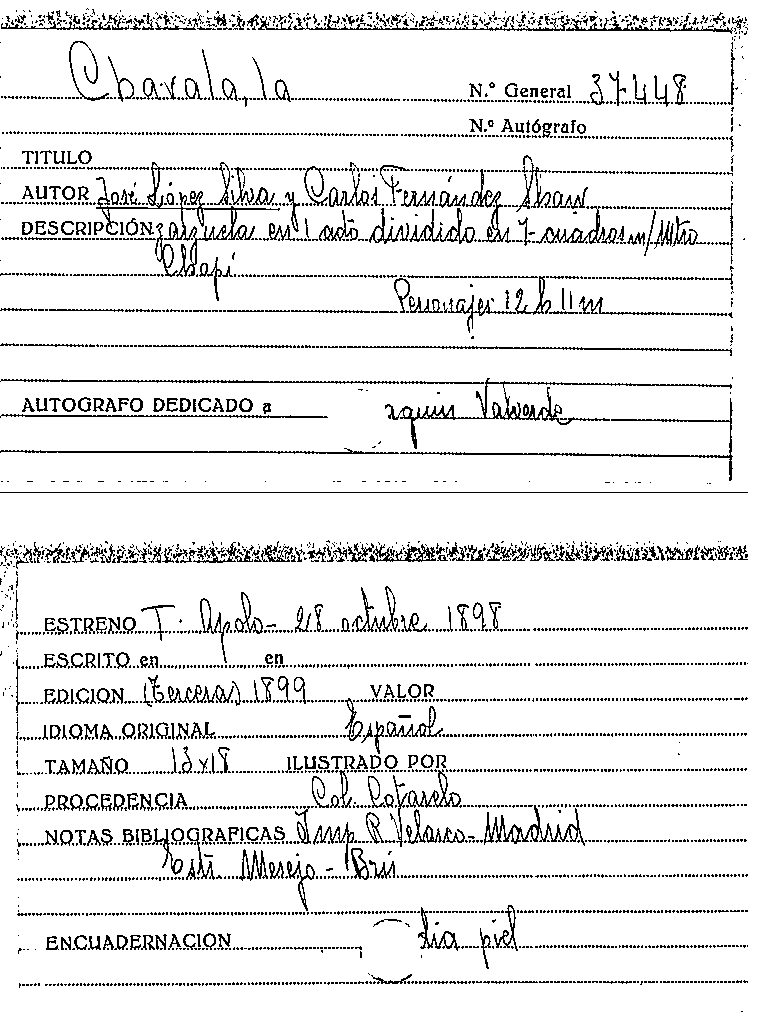 Chavala, la
N.º General 37-448
N.º Autógrafo
TITULO
AUTOR José López Silva y Carlos Fernández Shaw
DESCRIPCIÓN zarzuela en 1 acto dividido en 7 cuadros m/ Mtro
Chapí
Personajes 12 h 11 m
AUTOGRAFO DEDICADO a Valverde
ESTRENO T. Apolo - 28 octubre 1898
ESCRITO en en
EDICION (tercera) 1899 VALOR
IDIOMA ORIGINAL Español
TAMAÑO 13x18 ILUSTRADO POR
PROCEDENCIA Col. Cotarelo
NOTAS BIBLIOGRAFICAS Imp R Velasco - Madrid
Estr. Mesejo - Brú
ENCUADERNACION piel